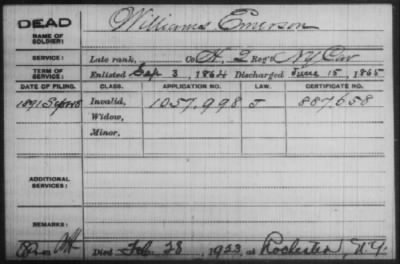 DEAD
Williams Emerson
NAME OF SOLDIER:
SERVICE: Late rank, Co. H, 2 Reg't N.Y. Cav
TERM OF SERVICE: Enlisted Sep 3, 1864 Discharged June 15, 1865
DATE OF FILING. CLASS. APPLICATION NO. LAW. CERTIFICATE NO.
1891 Sep Invalid, 1057.998 J 887.658
Widow,
Minor,
ADDITIONAL SERVICES:
REMARKS:
Died Feb. 28, 1923, at Rochester, N.Y.